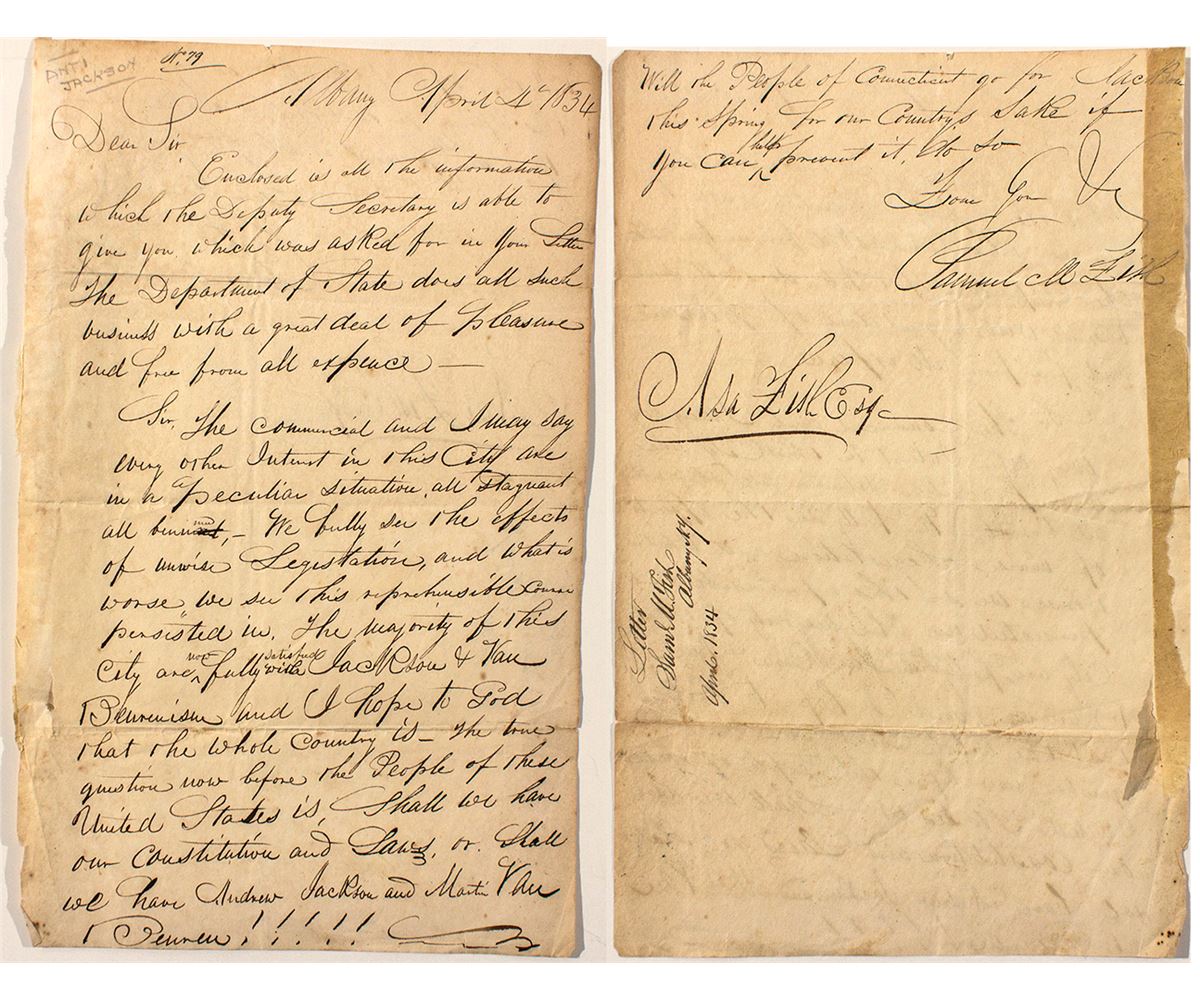 ANTI
JACKSON
No 79
Albany April 4th 1834
Dear Sir
Enclosed is all the information
which the Deputy Secretary is able to
give you, which was asked for in your Letter
The Department of State does all such
business with a great deal of pleasure
and free from all expence —
Sir, The commercial and I may say
every other Interest in this City are
in a peculiar situation, all stagnant
all — We fully see the effects
of unwise Legistation, and what is
worse, we see this reprehensible course
persisted in. The majority of this
City are now fully satisfied with Jackson & Van
Beurenism and I hope to God
that the whole Country is — The true
question now before the People of these
United States is, Shall we have
our Constitution and Laws, or Shall
we have Andrew Jackson and Martin Van
Beuren!!!!!
Will the People of Connecticut go for Jackson
this Spring, for our Country's Sake if
you can help prevent it, do so
From Your &c
Samuel M Fish
Asa Fish Esq
Letter
Saml M. Fish
Albany N.Y.
April. 1834